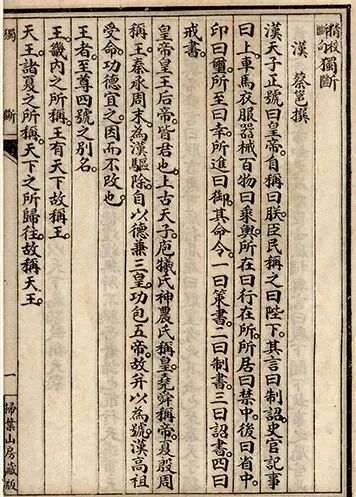 精校斷句獨斷
漢 蔡邕撰
漢天子正號曰皇帝。自稱曰朕。臣民稱之曰陛下。其言曰制詔。史官記事
曰上。車馬衣服器械百物曰乘輿。所在曰行在所。所居曰禁中。後曰省中。
印曰璽。所至曰幸。所進曰御。其命令。一曰策書。二曰制書。三曰詔書。四曰
戒書。
皇帝皇王后帝。皆君也。上古天子。庖犧氏神農氏稱皇。堯舜稱帝。夏殷周
稱王。秦承周末。為漢驅除。自以德兼三皇。功包五帝。故并以為號。漢高祖
受命。功德宜之。因而不改也。
王者至尊。四號之別名。
王。畿內之所稱。王有天下。故稱王。
天王。諸夏之所稱。天下之所歸往。故稱天王。
獨斷 一 掃葉山房藏版